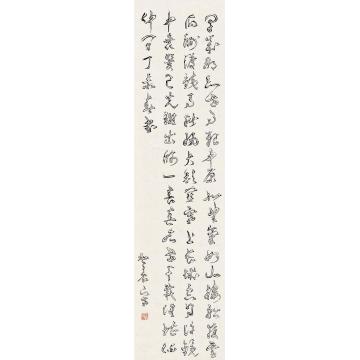 早歲那知世事艱中原北望氣如山樓船夜雪
瓜洲渡鐵馬秋風大散關塞上長城空自許鏡
中衰鬢已先斑出師一表真名世千載誰堪伯
仲間丁亥春書